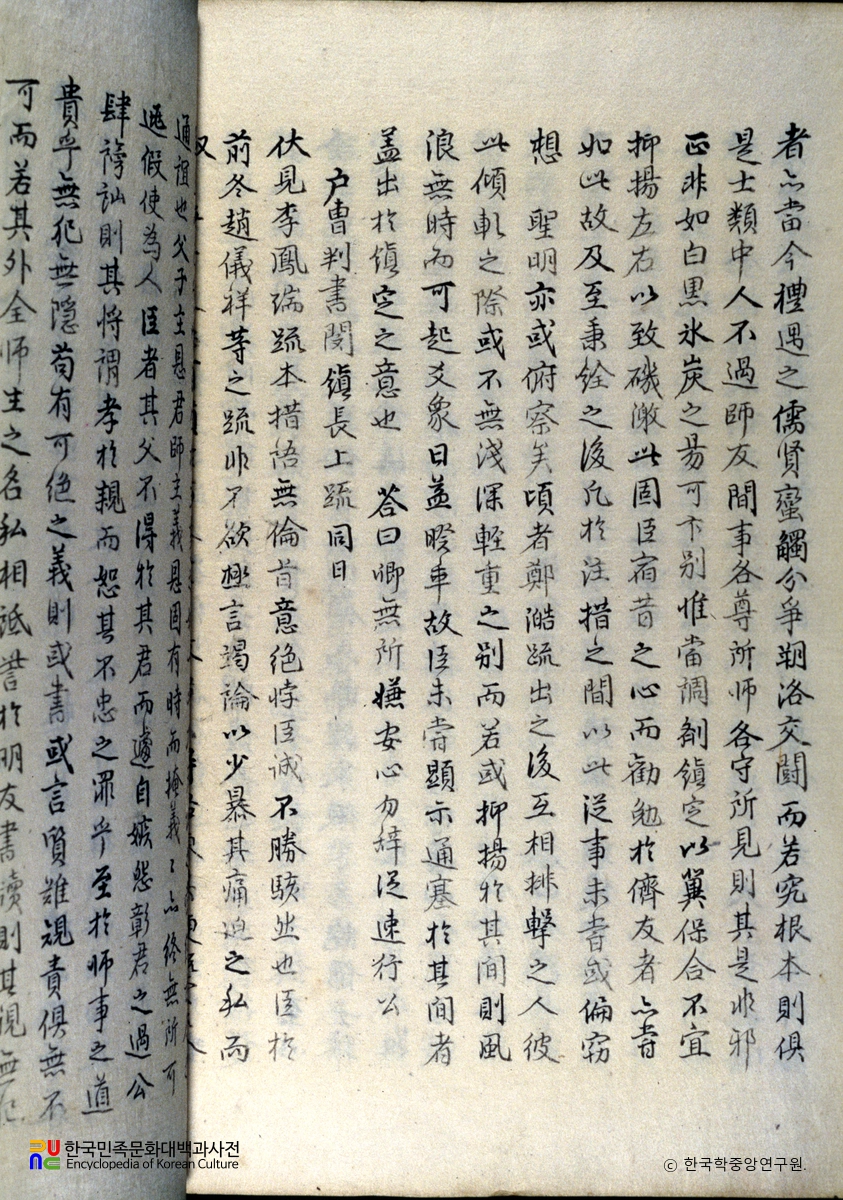 者亦當今禮遇之儒賢蠻觸分爭朝洛交鬪而若究根本則俱
是士類中人不過師友間事各尊所師各守所見則其是非邪
正非如白黑氷炭之易可卞別惟當調劑鎭定以冀保合不宜
抑揚左右以致磯激此固臣宿昔之心而勸勉於儕友者亦嘗
如此故及至秉銓之後凡於注措之間以此從事未嘗或偏窃
想 聖明亦或俯察矣頃者鄭澔疏出之後互相排擊之人彼
此傾軋之際或不無淺深輕重之別而若或抑揚於其間則風
浪無時而可起爻象日益暌乖故臣未嘗顯示通塞於其間者
盖出於鎭定之意也 答曰卿無所嫌安心勿辞從速行公
戶曹判書閔鎭長上疏同日
伏見李鳳瑞疏本措語無倫首意絶悖臣誠不勝駭然也臣於
前冬趙儀祥等之疏非不欲極言竭論以少暴其痛迫之私而
通誼也父子主恩君師主義恩固有時而掩義義亦終無所可
逃假使為人臣者其父不得於其君而遽自嫉怨彰君之過公
肆謗訕則其將謂孝於親而恕其不忠之罪乎至於師事之道
貴乎無犯無隱苟有可絶之義則或書或言質難規責俱無不
可而若其外全師生之名私相詆訾於朋友書牘則其視無犯
한국민족문화대백과사전
Encyclopedia of Korean Culture
© 한국학중앙연구원